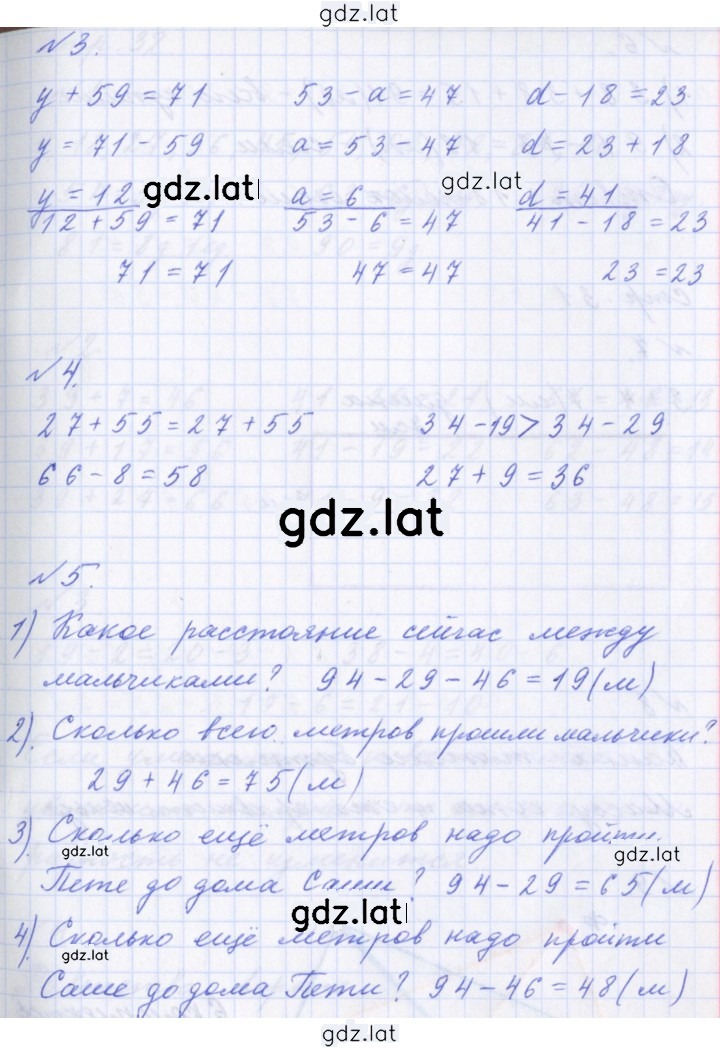 gdz.lat
№3.
y + 59 = 71 53 - a = 47 d - 18 = 23
y = 71 - 59 a = 53 - 47 d = 23 + 18
y = 12 gdz.lat a = 6 gdz.lat d = 41
12 + 59 = 71 53 - 6 = 47 41 - 18 = 23
71 = 71 47 = 47 23 = 23
№4.
27 + 55 = 27 + 55 34 - 19 > 34 - 29
66 - 8 = 58 27 + 9 = 36
gdz.lat
№5.
1) Какое расстояние сейчас между
мальчиками? 94 - 29 - 46 = 19 (м)
2) Сколько всего метров прошли мальчики?
29 + 46 = 75 (м)
3) Сколько ещё метров надо пройти
gdz.lat gdz.lat
Пете до дома Саши? 94 - 29 = 65 (м)
gdz.lat
4) Сколько ещё метров надо пройти
gdz.lat
Саше до дома Пети? 94 - 46 = 48 (м)
gdz.lat